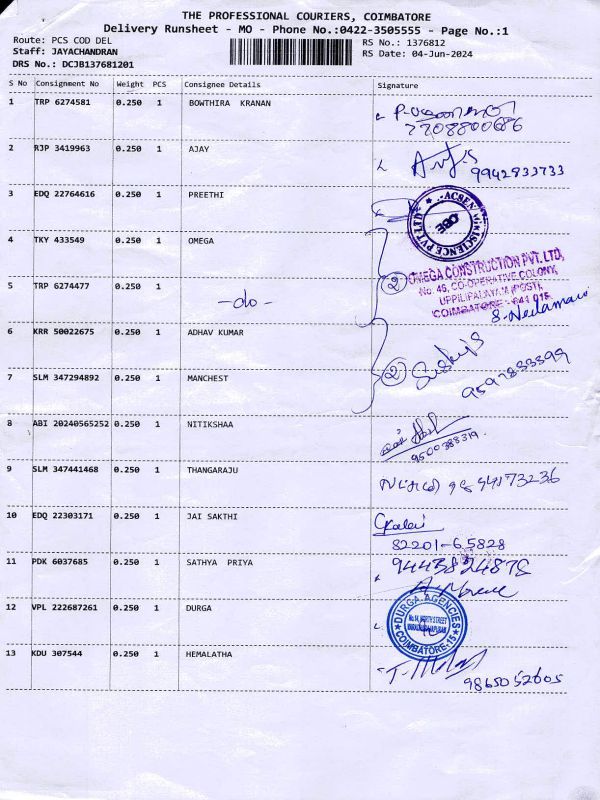 THE PROFESSIONAL COURIERS, COIMBATORE
Delivery Runsheet - MO - Phone No.:0422-3505555 - Page No.:1
Route: PCS COD DEL
RS No.: 1376812
Staff: JAYACHANDRAN
RS Date: 04-Jun-2024
DRS No.: DCJB137681201
S No Consignment No Weight PCS Consignee Details Signature
1 TRP 6274581 0.250 1 BOWTHIRA KRANAN
7708800686
2 RJP 3419963 0.250 1 AJAY
9942933733
3 EDQ 22764616 0.250 1 PREETHI
4 TKY 433549 0.250 1 OMEGA
② OMEGA CONSTRUCTION PVT. LTD,
No. 46, CO-OPERATIVE COLONY,
UPPILIPALAYAM (POST),
COIMBATORE - 641 015.
5 TRP 6274477 0.250 1 -do-
6 KRR 50022675 0.250 1 ADHAV KUMAR
7 SLM 347294892 0.250 1 MANCHEST
②
8 ABI 20240565252 0.250 1 NITIKSHAA
9500388319
9 SLM 347441468 0.250 1 THANGARAJU
10 EDQ 22303171 0.250 1 JAI SAKTHI
82201-65828
11 PDK 6037685 0.250 1 SATHYA PRIYA
12 VPL 222687261 0.250 1 DURGA
DURGA AGENCIES
COIMBATORE-15
13 KDU 307544 0.250 1 HEMALATHA
9865052605